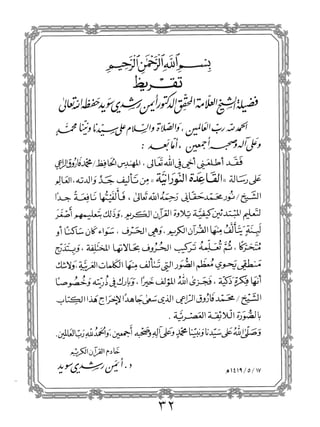 بسم الله الرحمن الرحيم
تقريظ
فضيلة الشيخ العلامة المحقق الدكتور أيمن رشدي سويد حفظه الله تعالى
الحمد لله رب العالمين، والصلاة والسلام على سيدنا ونبينا محمد
وعلى آله وصحبه أجمعين، أما بعد:
فقد أطلعني أخي في الله تعالى، المهندس الحافظ/ محمد فاروق الراعي
على رسالة «القاعدة النورانية» من تأليف جد والدته، العالم
الشيخ/ نور محمد حقاني رحمه الله تعالى، فألفيتها نافعة جدا
لتعليم المبتدئين كيفية تلاوة القرآن الكريم، وذلك بتعليمهم أصغر
لبنة يتألف منها القرآن الكريم، وهي الحرف، سواء كان ساكنا أو
متحركا، ثم تعليمه تركيب الحروف بحالاتها المختلفة، وبتدرج
منطقي يحوي معظم الصور التي تتألف منها الكلمات العربية، ولا شك
أنها فكرة ذكية، فجزى الله المؤلف خيرا، وبارك في ذريته وخصوصا
الشيخ/ محمد فاروق الراعي الذي سعى جاهدا لإخراج هذا الكتاب
بالصورة اللائقة العصرية.
وصلى الله على سيدنا ونبينا محمد وعلى آله وصحبه أجمعين، والحمد لله رب العالمين.
خادم القرآن الكريم
د. أيمن رشدي سويد
١٧/٥/١٤١٩هـ
٣٢